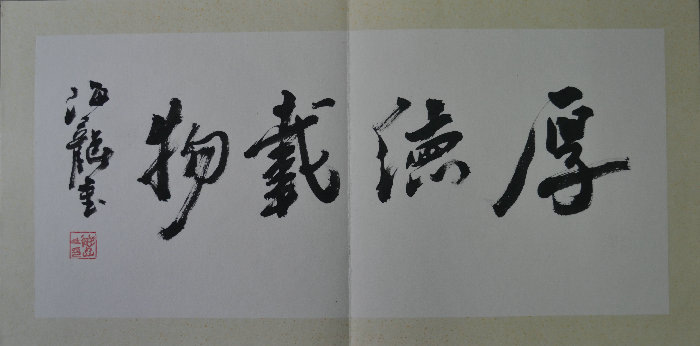 厚德載物
海龍書